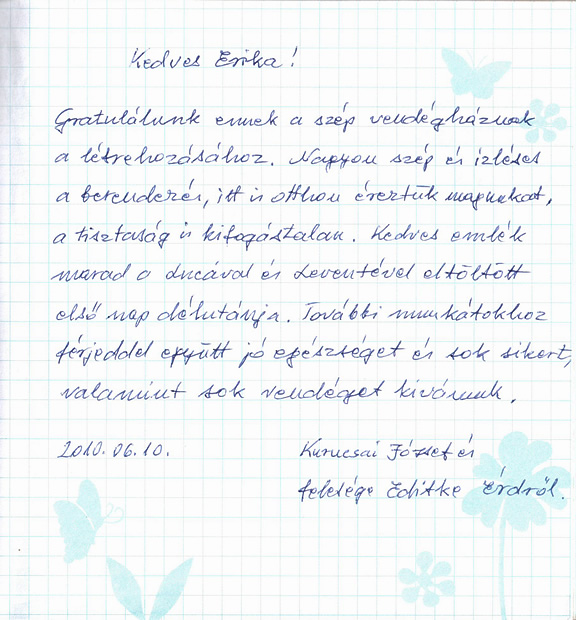 Kedves Erika!
Gratulálunk ennek a szép vendégháznak
a létrehozásához. Nagyon szép és ízléses
a berendezés, itt is otthon éreztük magunkat,
a tisztaság is kifogástalan. Kedves emlék
marad a Lucával és Leventével eltöltött
első nap délutánja. További munkátokhoz
férjeddel együtt jó egészséget és sok sikert,
valamint sok vendéget kívánunk.
2010.06.10. Kurucsai József és
felesége Editke Érdről.